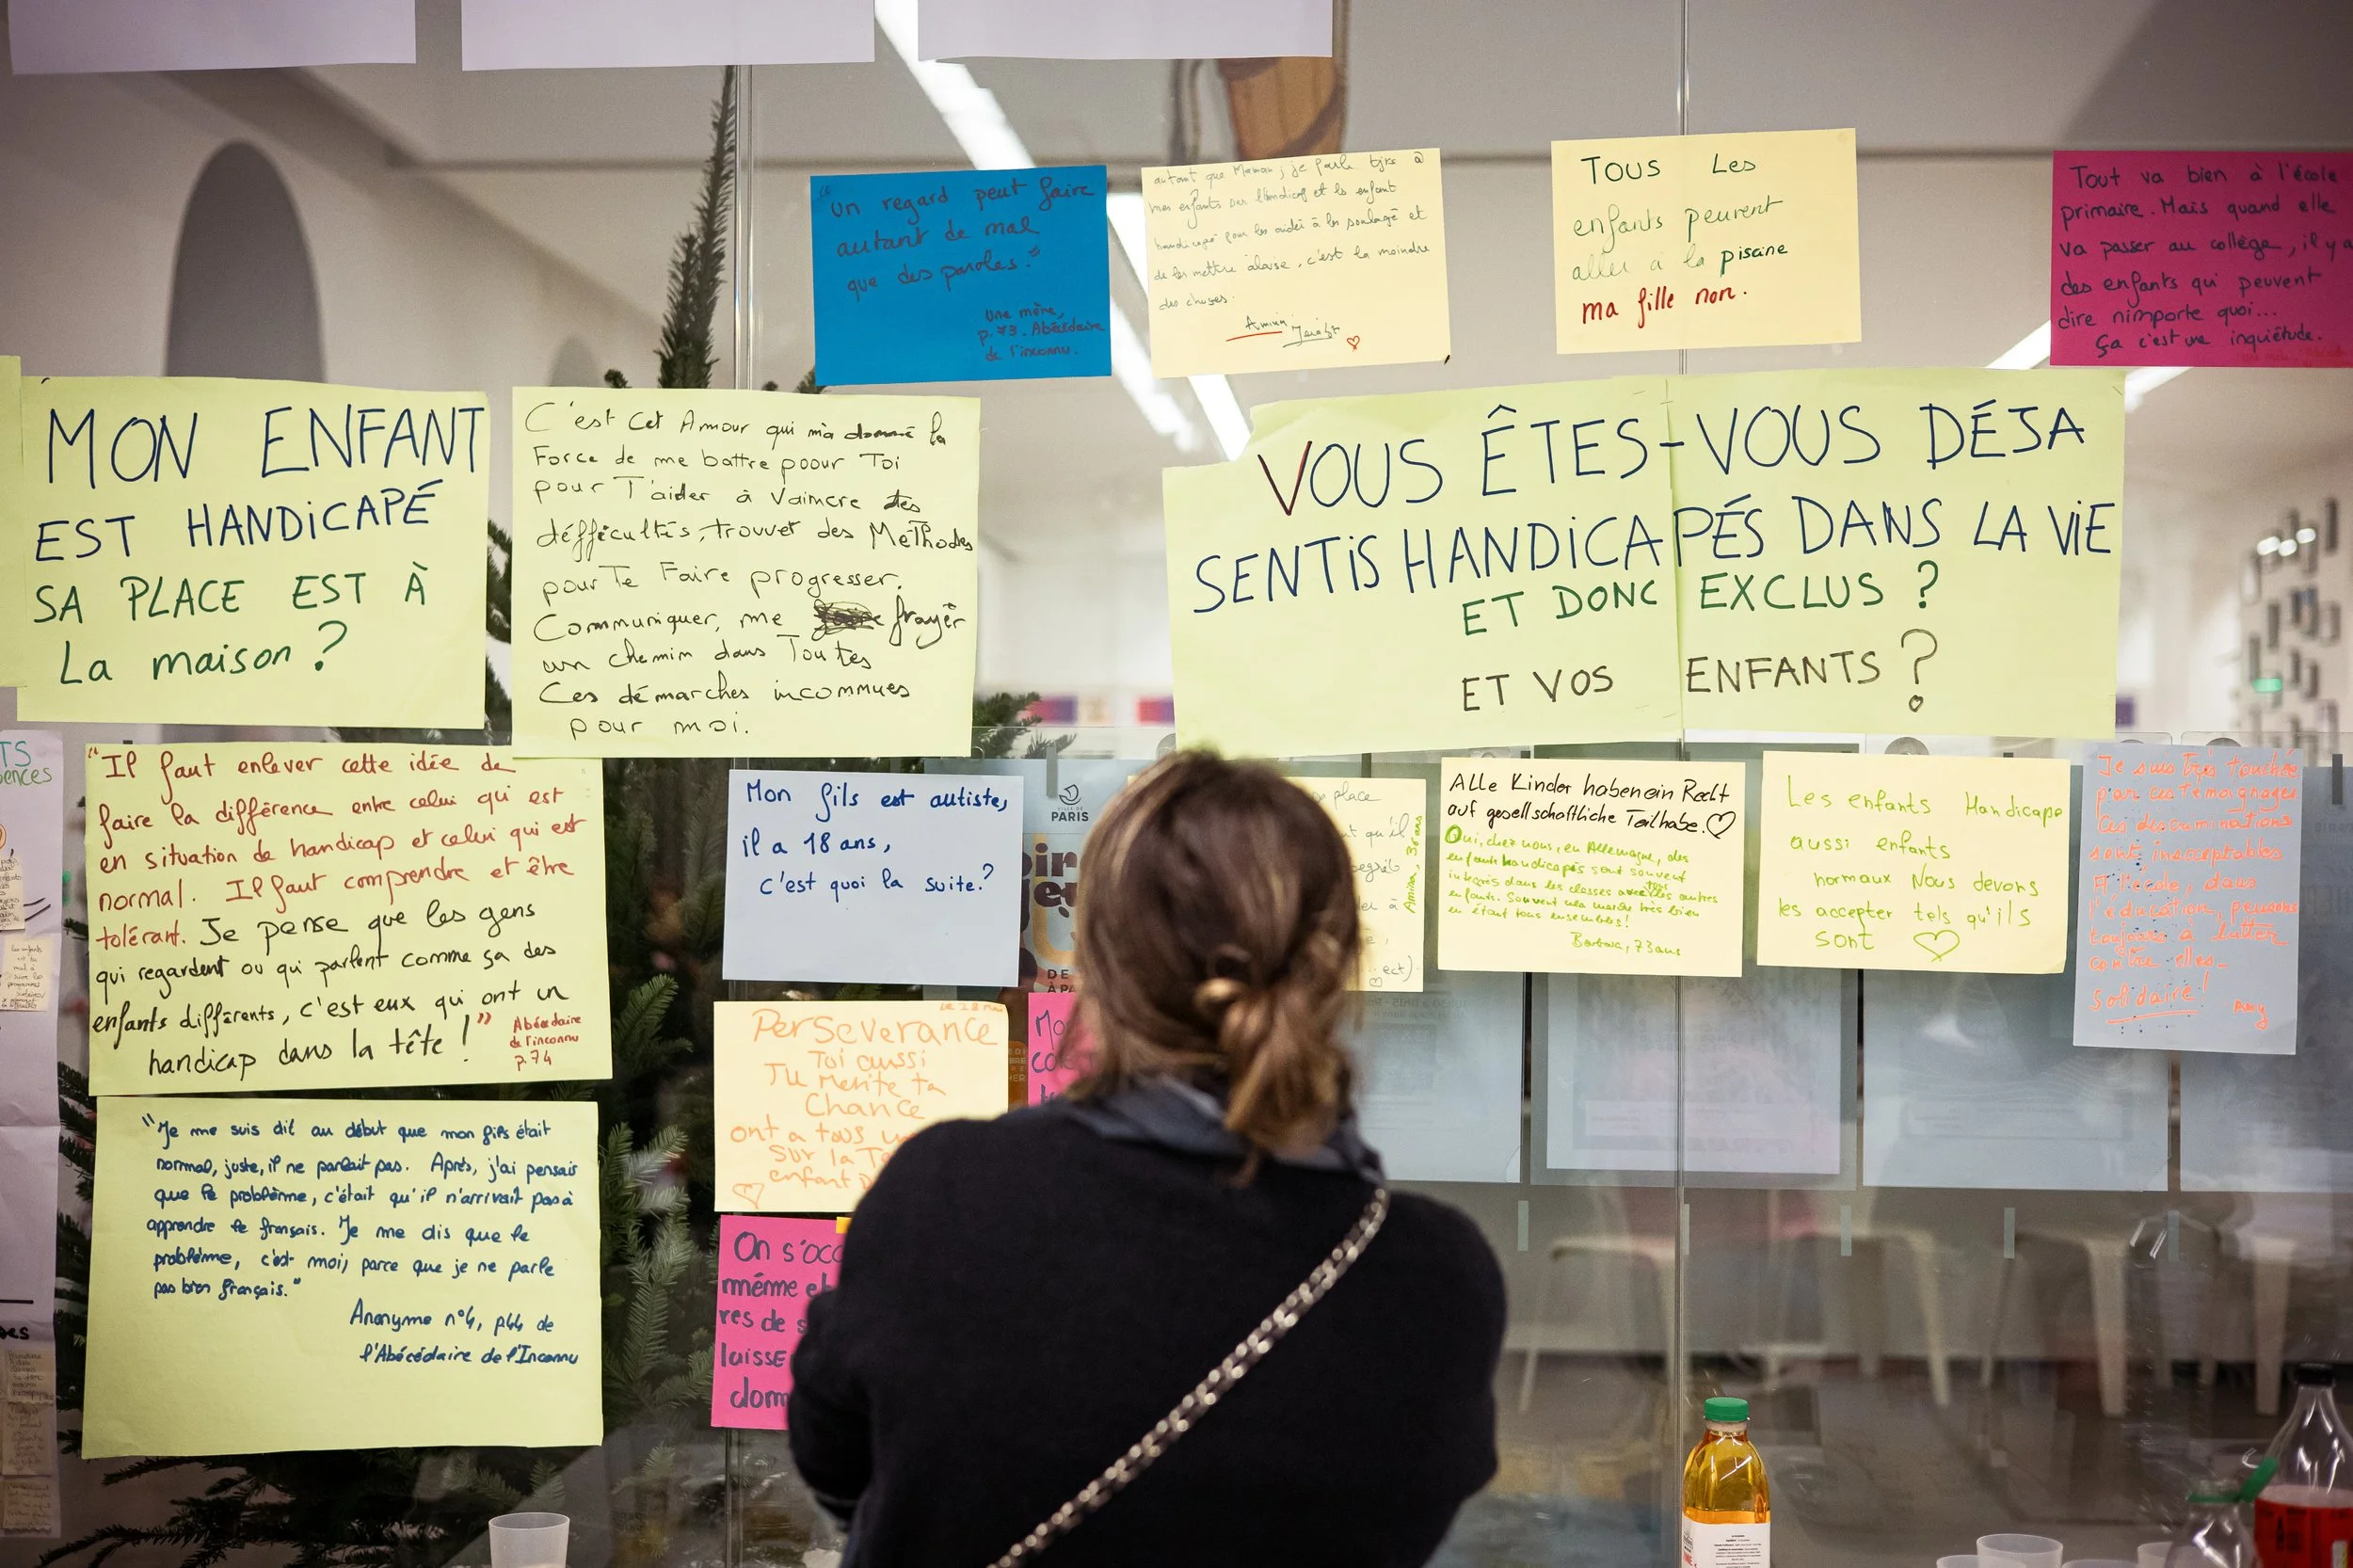 "Un regard peut faire
autant de mal
que des paroles."
Une mère,
p.73. Abécédaire
de l'inconnu.
autant que Maman, je parle tjrs @
mes enfants sur l'handicap et les enfant
handicapé pour les aidés à les soulagé et
de les mettre alaise, c'est la moindre
des choses.
TOUS Les
enfants peuvent
aller a la pisaine
ma fille non.
Tout va bien à l'école
primaire. Mais quand elle
va passer au collège, il y a
des enfants qui peuvent
dire n'importe quoi...
Ça c'est une inquiétude.
MON ENFANT
EST HANDICAPÉ
SA PLACE EST À
La maison ?
C'est Cet Amour qui m'a donné la
Force de me battre poour Toi
pour T'aider à Vaincre des
défficultés, trouver des Méthodes
pour Te Faire progresser.
Communiquer, me frayer
un chemin dans Toutes
Ces démarches incommues
pour moi.
VOUS ÊTES-VOUS DÉJA
SENTIS HANDICAPÉS DANS LA VIE
ET DONC EXCLUS ?
ET VOS ENFANTS ?
"Il faut enlever cette idée de
faire la différence entre celui qui est
en situation de handicap et celui qui est
normal. Il faut comprendre et être
tolérant. Je pense que les gens
qui regardent ou qui parlent comme ça des
enfants différents, c'est eux qui ont un
handicap dans la tête !"
Abécédaire
de l'inconnu
p.74
Mon fils est autiste,
il a 18 ans,
c'est quoi la suite ?
PARIS
place
qu'il
Amina, 30 ans
Alle Kinder haben ein Recht
auf gesellschaftliche Teilhabe. ♡
Oui, chez nous, en Allemagne, des
enfants handicapés sont souvent
integrés dans les classes avec les autres
enfants. Souvent cela marche très bien
en étant tous ensembles!
Barbara, 73 ans
Les enfants Handicape
aussi enfants
normaux Nous devons
les accepter tels qu'ils
sont ♡
Je suis très touchée
par ces témoignages
Ces discriminations
sont inacceptables
A l'école, dans
l'éducation, pensons
toujours à lutter
contre elles_
Solidaire !
Perseverance
Toi aussi
Tu merite ta
Chance
ont a tous
sur la
enfant
On s'occ
même et
res de s
laisse
donn
"Je me suis dit au début que mon fils était
normal, juste, il ne parlait pas. Après, j'ai pensais
que le problème, c'était qu'il n'arrivait pas à
apprendre le français. Je me dis que le
problème, c'est moi, parce que je ne parle
pas bien français."
Anonyme n°4, p44 de
l'Abécédaire de l'Inconnu